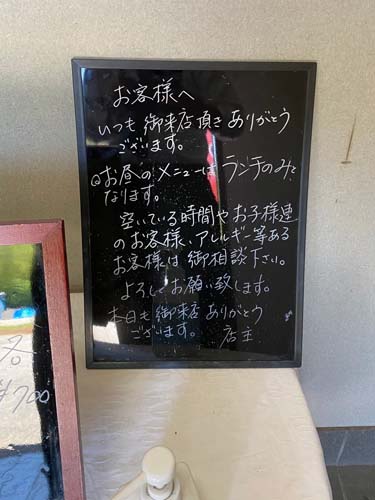 お客様へ
いつも御来店頂きありがとう
ございます。
◎お昼のメニューはランチのみと
なります。
空いている時間やお子様連
のお客様、アレルギー等ある
お客様は御相談下さい。
よろしくお願い致します。
本日も御来店ありがとう
ございます。 店主
名
¥700